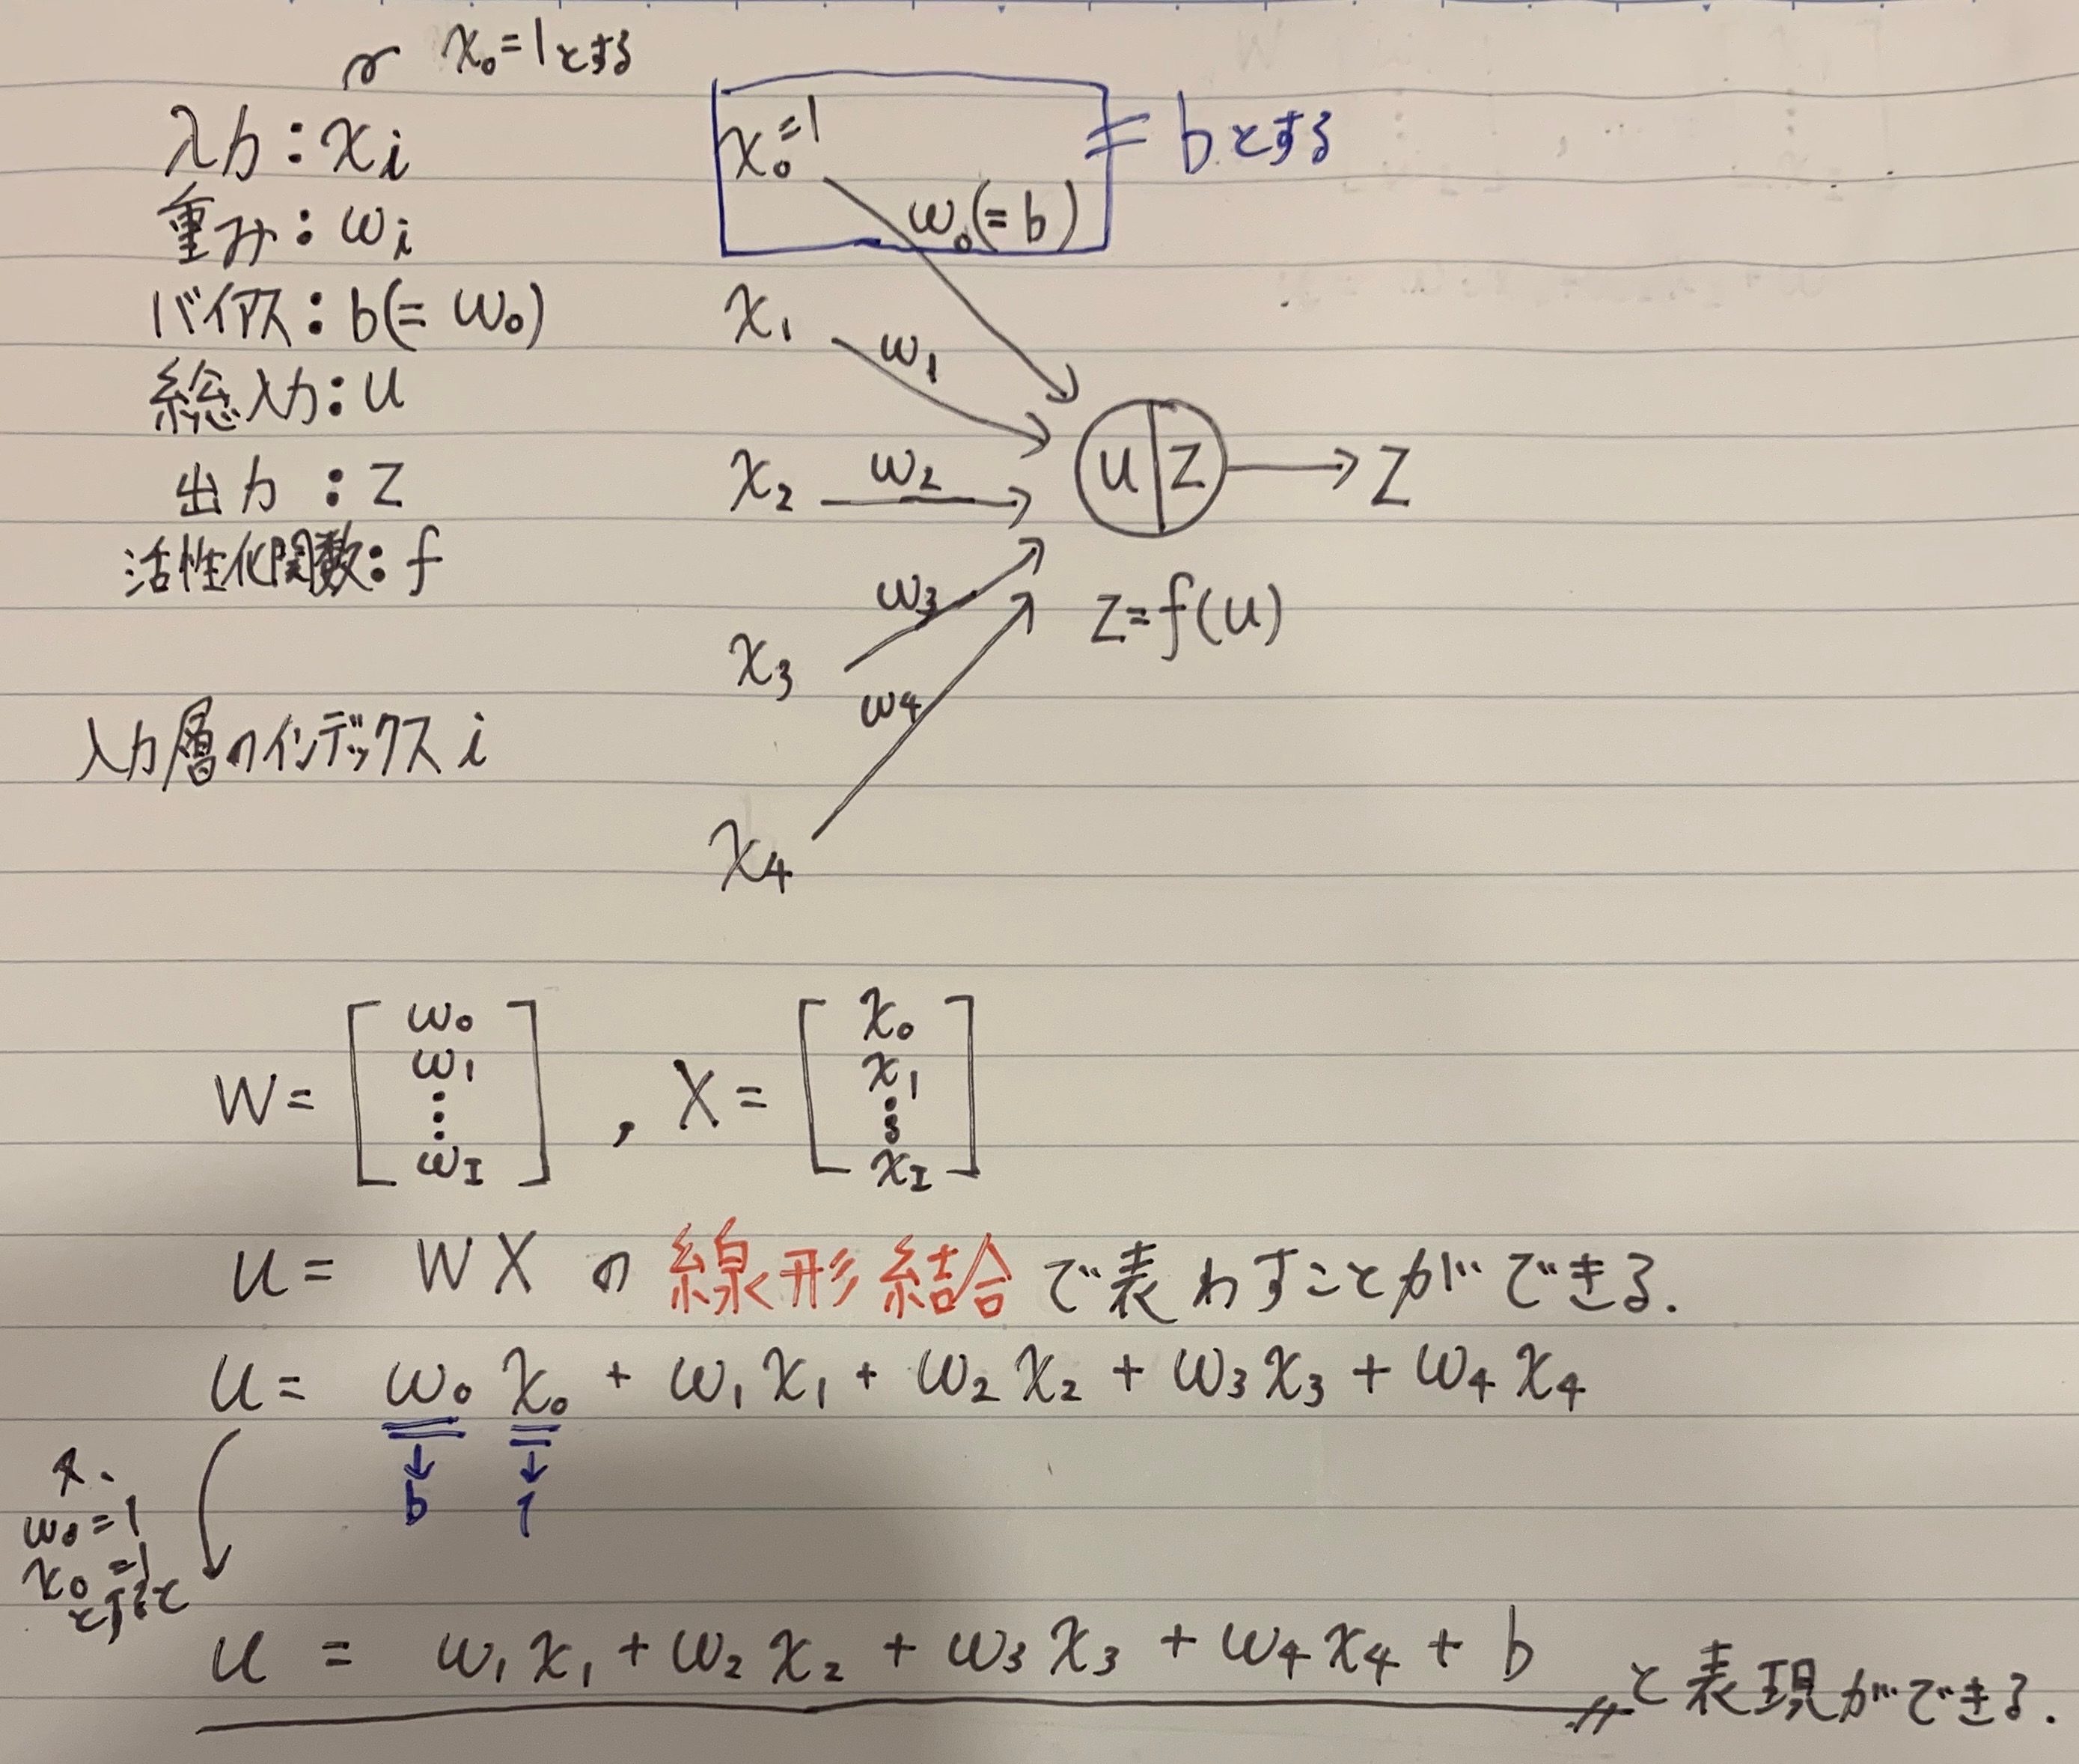 x₀=1とする
入力：xᵢ
重み：wᵢ
バイアス：b(= w₀)
総入力：u
出力：z
活性化関数：f
入力層のインデックス i
x₀=1
= bとする
w₀(= b)
x₁
w₁
x₂
w₂
u|z → z
w₃
z=f(u)
x₃
w₄
x₄
W= [ w₀ w₁ ⋮ w_I ] , X= [ x₀ x₁ ⋮ x_I ]
u= WX の 線形結合で表わすことができる.
u= w₀x₀ + w₁x₁ + w₂x₂ + w₃x₃ + w₄x₄
↓ ↓
b 1
w₀=1
x₀=1
とすると
u = w₁x₁ + w₂x₂ + w₃x₃ + w₄x₄ + b と表現ができる.